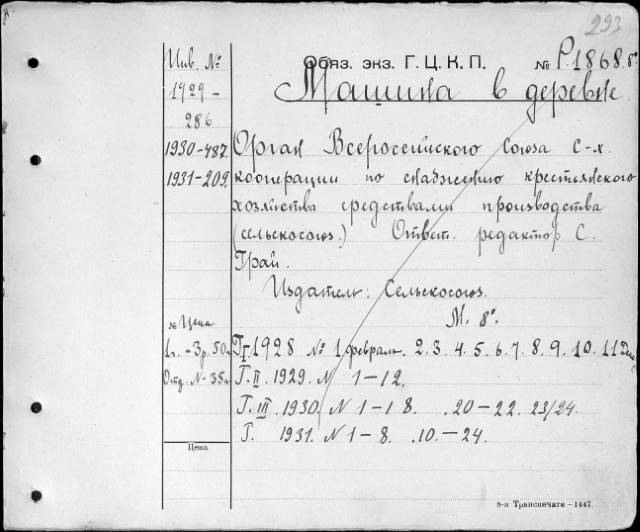 293
Инв. №
Обяз. экз. Г. Ц. К. П. № Р.1868.б.
Машина в деревне.
1929-
286
1930-487.
1931-209.
Орган Всероссийского Союза С-х.
кооперации по снабжению крестьянского
хозяйства средствами производства
(сельскосоюз.) Ответ. редактор С.
Грай.
Издатель: Сельскосоюз.
М. 8º.
№ Цена
1 г. - 3 р. 50к
Отд. № 35к
Г.I 1928 № 1 февраль. 2. 3. 4. 5. 6. 7. 8. 9. 10. 11 Дек
Г. II. 1929. № 1-12.
Г. III 1930. № 1-18. .20-22. 23/24.
Г. 1931. № 1-8. .10.-24.
Цена
8-я Транспечати-1447.